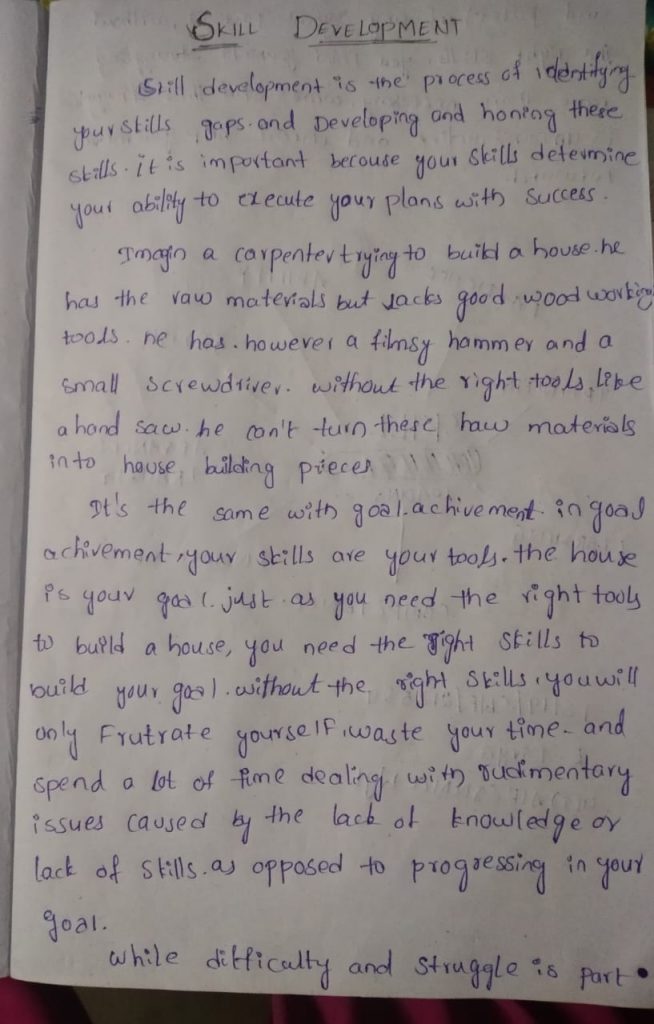 SKILL DEVELOPMENT
Skill development is the process of identifying
your skills gaps. and Developing and honing these
skills. it is important because your skills determine
your ability to execute your plans with success.
Imagin a carpenter trying to build a house. he
has the raw materials but lacks good wood working
tools. he has. however a filmsy hammer and a
small screwdriver. without the right tools, like
a hand saw. he can't turn these haw materials
into house, building pieces
It's the same with goal. achivement. in goal
achivement, your skills are your tools. the house
is your goal. just as you need the right tools
to build a house, you need the right skills to
build your goal. without the right skills, you will
only Frutrate yourself, waste your time. and
spend a lot of time dealing with rudimentary
issues caused by the lack of knowledge or
lack of skills. as opposed to progressing in your
goal.
while difficulty and struggle is part